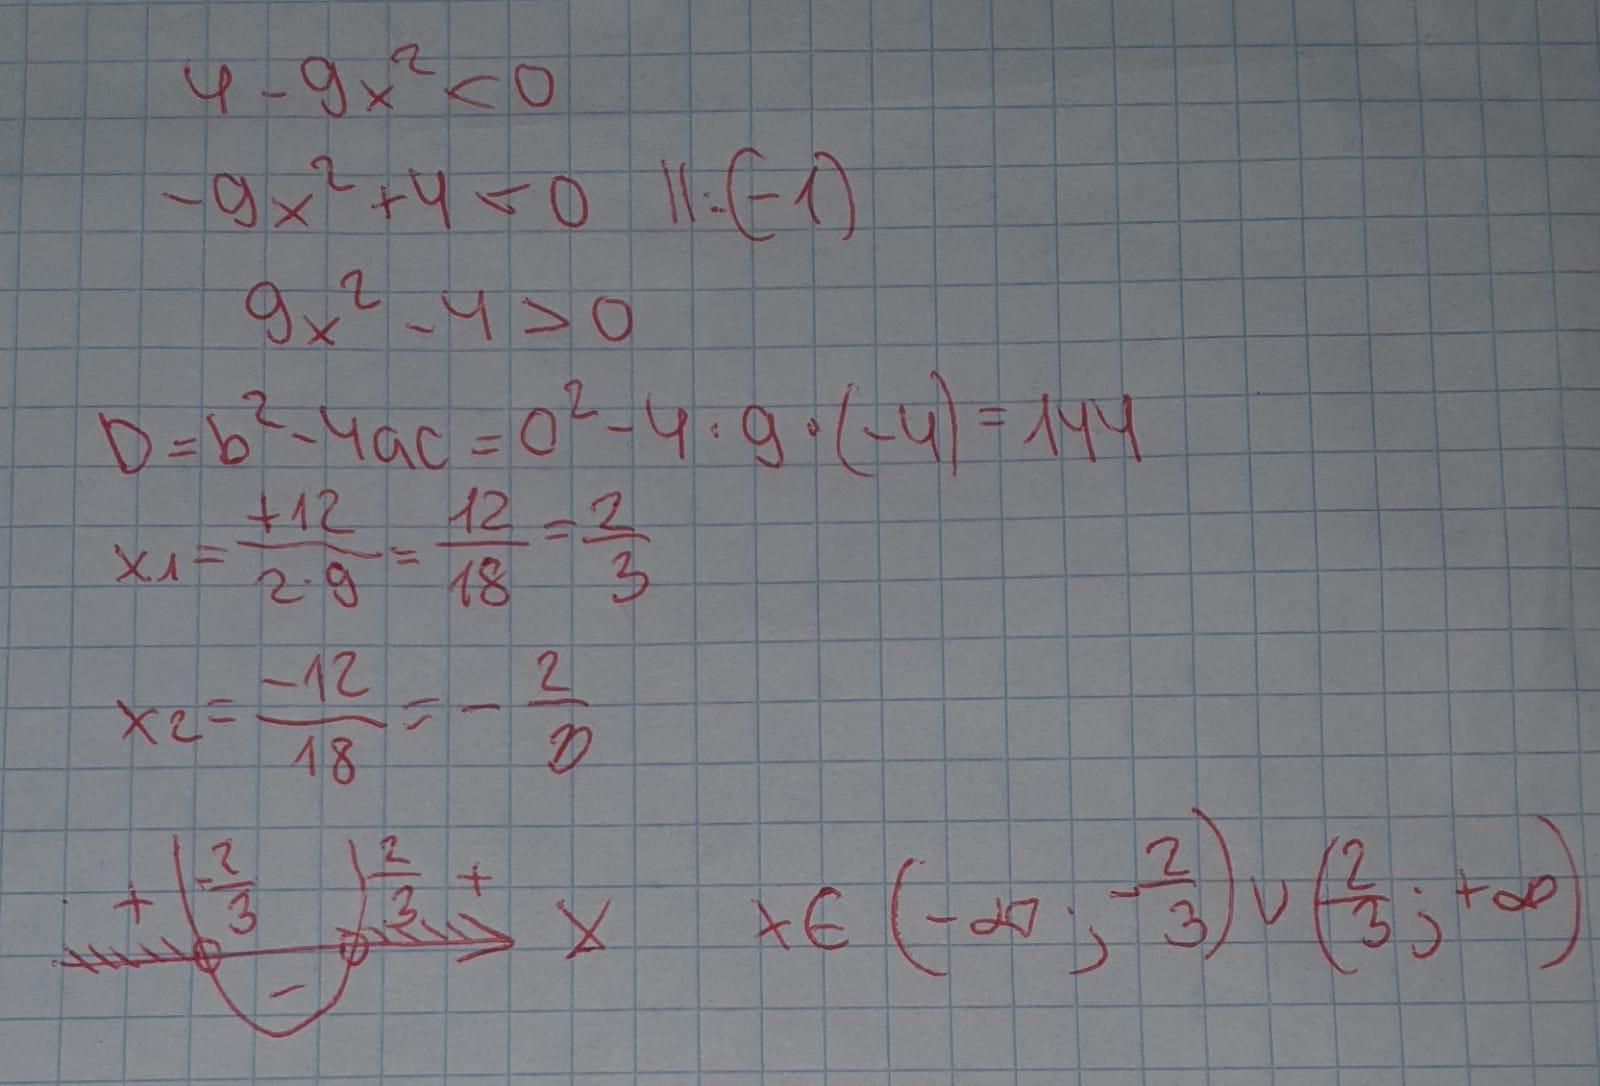 4 - 9x² < 0
-9x² + 4 < 0 ||:(-1)
9x² - 4 > 0
D = b² - 4ac = 0² - 4 · 9 · (-4) = 144
x1 = +12/2·9 = 12/18 = 2/3
x2 = -12/18 = - 2/3
+ -2/3 - 2/3 + X
x ∈ (-∞; -2/3) ∪ (2/3; +∞)